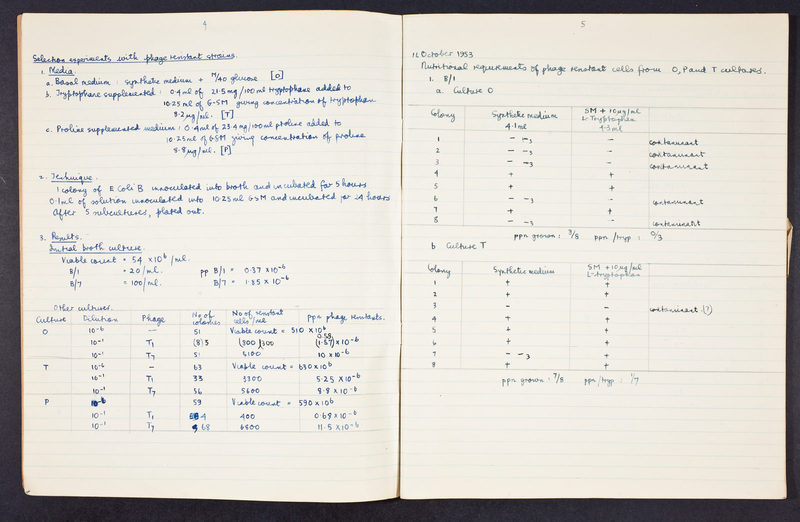 4
Selection experiments with phage resistant strains.
1. Media.
a. Basal medium : synthetic medium + M/40 glucose [O]
b. Tryptophane supplemented : 0.4 ml of 21.5 mg/100 ml tryptophane added to
10.25 ml of G-SM giving concentration of tryptophan
8.2 μg/ml. [T]
c. Proline supplemented medium : 0.4 ml of 23.4 mg/100 ml proline added to
10.25 ml of GSM giving concentration of proline
8.8 μg/ml. [P]
2. Technique.
1 colony of E Coli B innoculated into broth and incubated for 5 hours
0.1 ml of solution innoculated into 10.25 ml GSM and incubated for 24 hours
After 5 subcultures, plated out.
3. Results.
Initial broth culture.
Viable count = 54 x 10⁶ /ml.
B/1 = 20/ml. pp B/1 = 0.37 x 10⁻⁶
B/7 = 100/ml. B/7 = 1.85 x 10⁻⁶
Other cultures.
Culture Dilution Phage No of colonies No of resistant cells/ml ppn phage resistants.
O 10⁻⁶ — 51 Viable count = 510 x 10⁶
10⁻¹ T₁ (8) 3 300 0.59 (1.57) x 10⁻⁶
10⁻¹ T₇ 51 5100 10 x 10⁻⁶
T 10⁻⁶ — 63 Viable count = 630 x 10⁶
10⁻¹ T₁ 33 3300 5.25 x 10⁻⁶
10⁻¹ T₇ 56 5600 8.8 x 10⁻⁶
P 10⁻⁶ 59 Viable count = 590 x 10⁶
10⁻¹ T₁ 4 400 0.68 x 10⁻⁶
10⁻¹ T₇ 68 6800 11.5 x 10⁻⁶
5
12 October 1953
Nutritional requirements of phage resistant cells from O, P and T cultures.
1. B/1
a. Culture O
Colony Synthetic medium 4.1 ml SM + 10 μg/ml L-Tryptophan 4.3 ml
1 - - ₃ - contaminant
2 - - ₃ - contaminant
3 - - ₃ - contaminant
4 + +
5 + +
6 - - ₃ - contaminant
7 + +
8 - - ₃ - contaminant
ppn grown : 3/8 ppn /tryp : 0/3
b Culture T
Colony Synthetic medium SM + 10 μg/ml L-Tryptophan
1 + +
2 + +
3 - - contaminant (?)
4 + +
5 + +
6 + +
7 - - ₃ +
8 + +
ppn grown : 7/8 ppn /tryp : 1/7